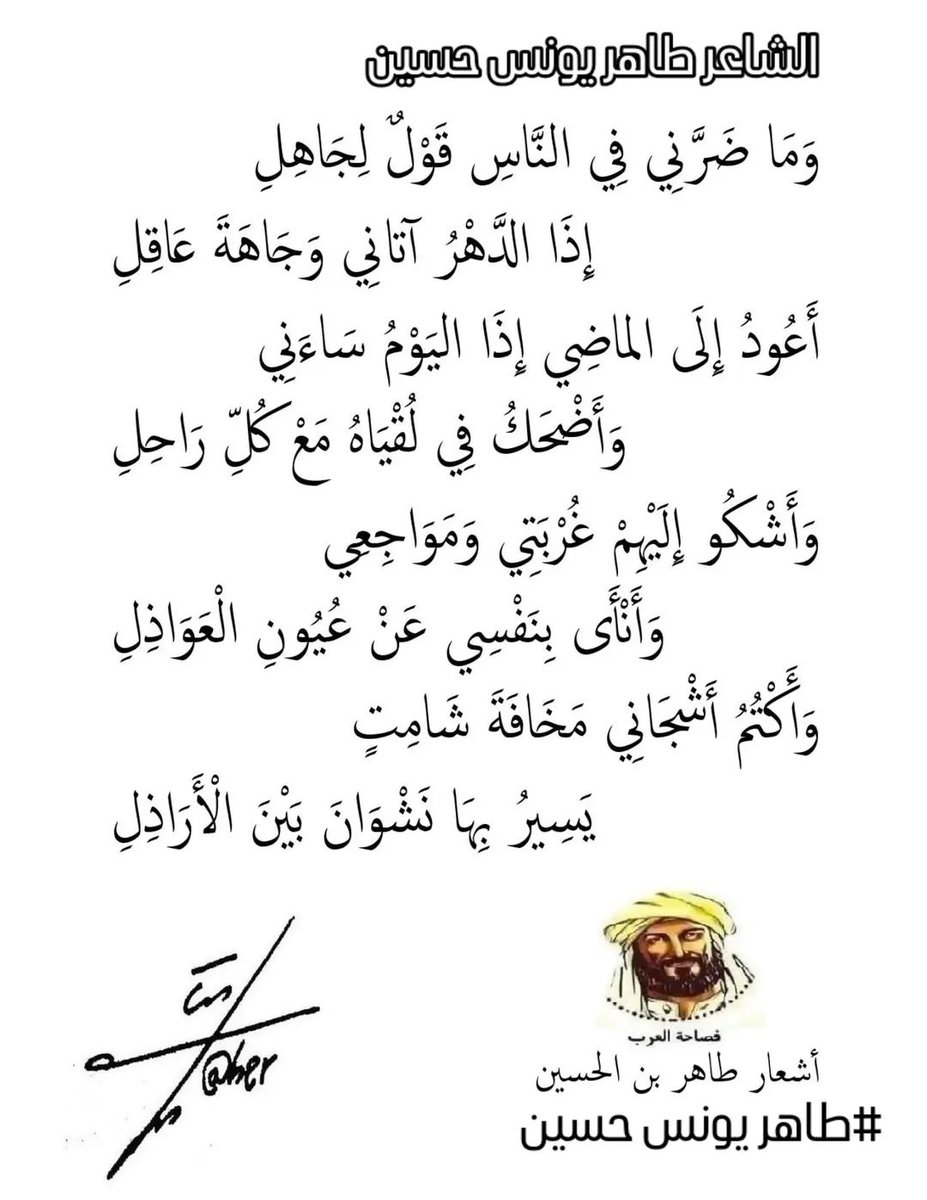 الشاعر طاهر يونس حسين
وَمَا ضَرَّنِي فِي النَّاسِ قَوْلٌ لِجَاهِلِ
إِذَا الدَّهْرُ آتانِي وَجَاهَةَ عَاقِلِ
أَعُودُ إِلَى الماضِي إِذَا اليَوْمُ سَاءَنِي
وَأَضْحَكُ فِي لُقْيَاهُ مَعْ كُلِّ رَاحِلِ
وَأَشْكُو إِلَيْهِمْ غُرْبَتِي وَمَوَاجِعِي
وَأَنْأَى بِنَفْسِي عَنْ عُيُونِ الْعَوَاذِلِ
وَأَكْتُمُ أَشْجَانِي مَخَافَةَ شَامِتٍ
يَسِيرُ بِهَا نَشْوَانَ بَيْنَ الْأَرَاذِلِ
فصاحة العرب
أشعار طاهر بن الحسين
#طاهر يونس حسين
@her